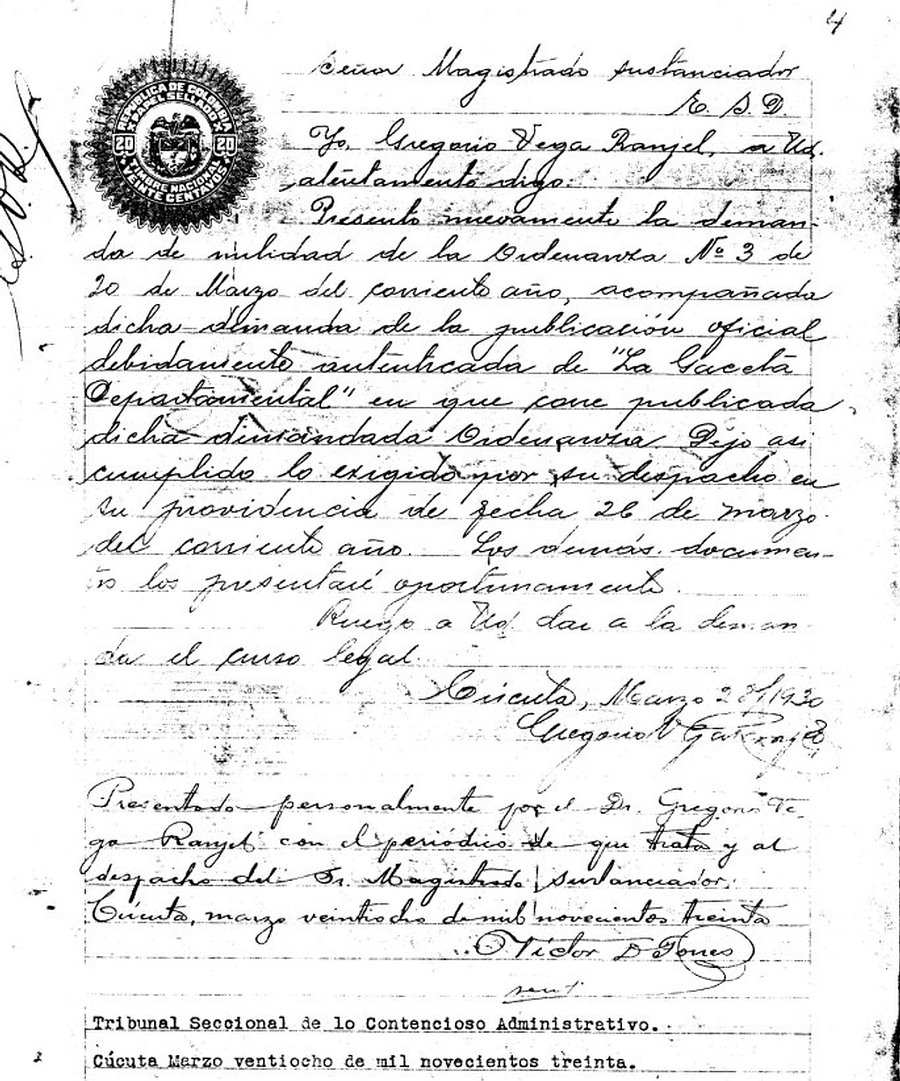 4
REPUBLICA DE COLOMBIA
PAPEL SELLADO
20 20
TIMBRE NACIONAL
VEINTE CENTAVOS
Señor Magistrado sustanciador
E. S. D.
Yo, Gregorio Vega Ranjel, a Ud.
atentamente digo:
Presento nuevamente la deman-
da de nulidad de la Ordenanza Nº 3 de
20 de Marzo del corriente año, acompañada
dicha demanda de la publicación oficial
debidamente autenticada de "La Gaceta
Departamental" en que corre publicada
dicha demandada Ordenanza. Dejo así
cumplido lo exigido por su despacho en
su providencia de fecha 26 de marzo
del corriente año. Los demás documen-
tos los presentaré oportunamente.
Ruego a Ud. dar a la deman
da el curso legal.
Cúcuta, Marzo 28/1930
Gregorio Vega Ranjel
Presentado personalmente por el Dr. Gregorio Ve-
ga Ranjel con el periódico de que trata y al
despacho del Sr. Magistrado sustanciador.
Cúcuta, marzo veintiocho de mil novecientos treinta
Víctor D Torres
Tribunal Seccional de lo Contencioso Administrativo.
Cúcuta Marzo ventiocho de mil novecientos treinta.